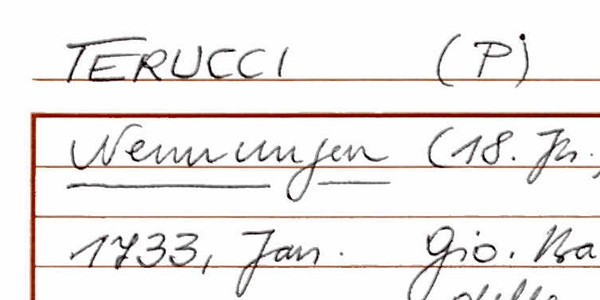 TERUCCI (P)
Nennungen (18. Jh.)
1733, Jan. Gio. Ba